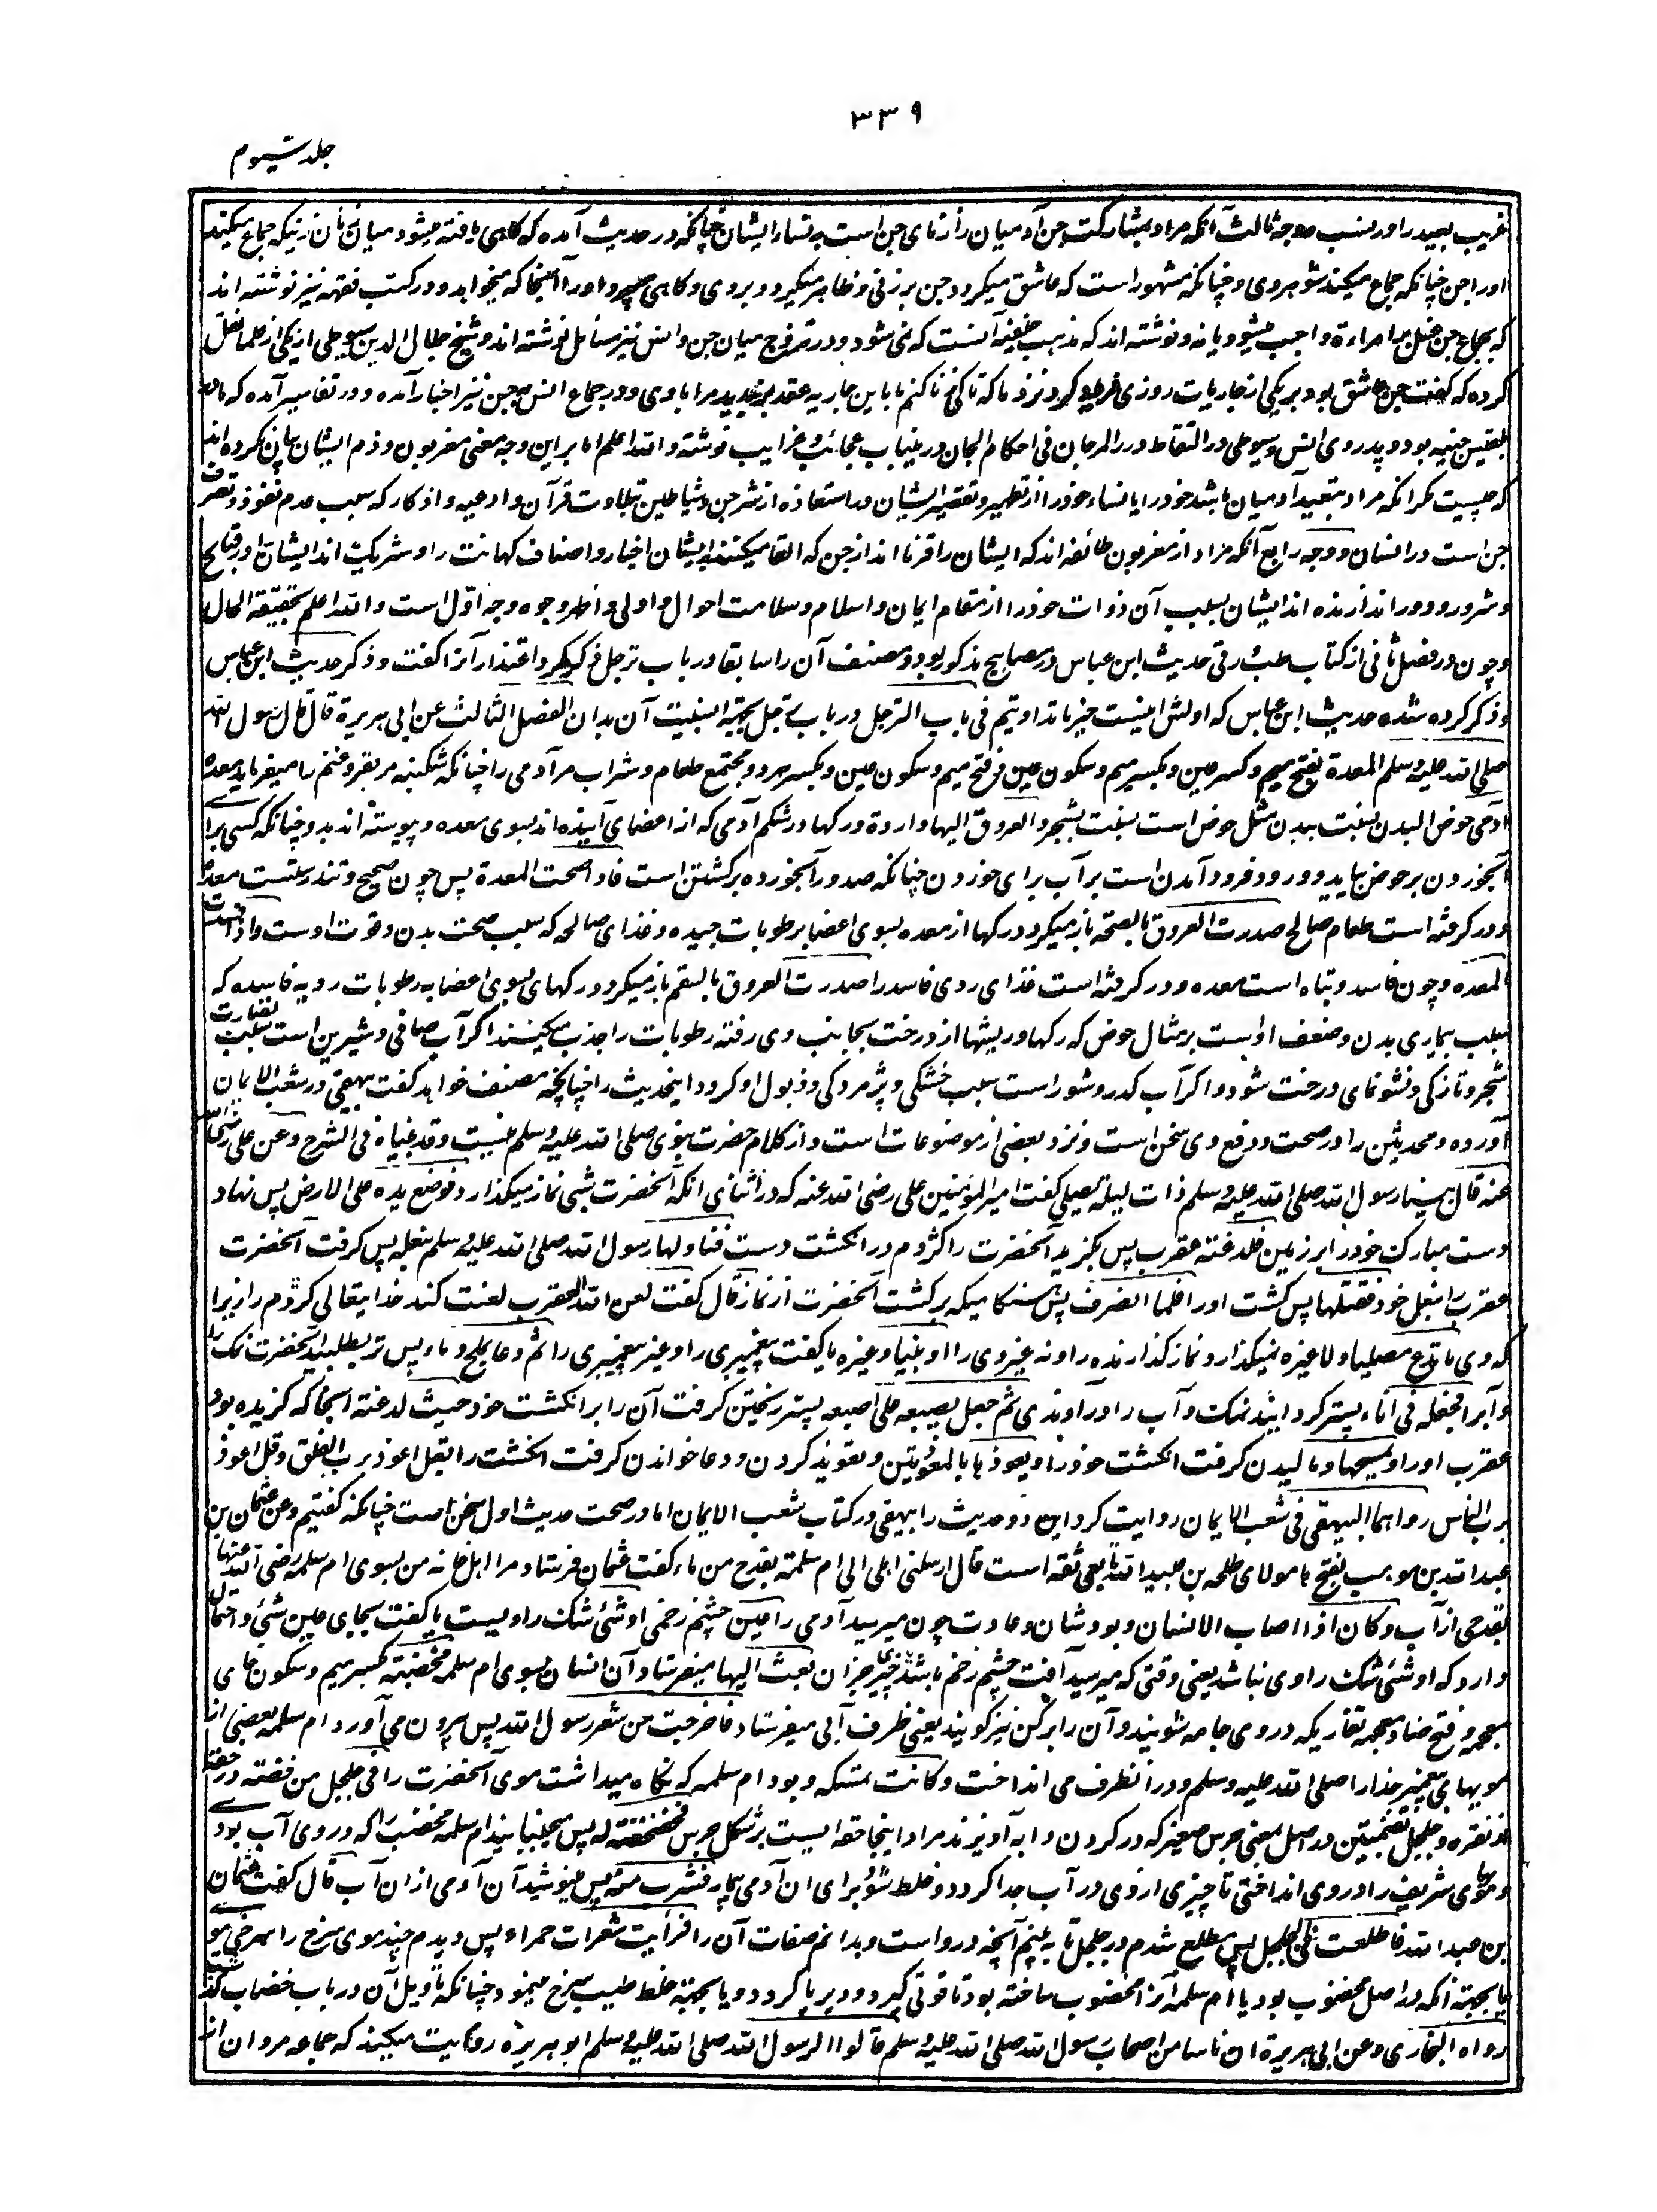 ۳۳۹
جلد سیوم
غریب بعید را در نسب وجه ثالث آنکه مراد بمشارکت جن آدمیان را زنای جن است به نساء ایشان چنانکه در حدیث آمده که گاهی یافته میشود میان زنان زنیکه جماع میکند
او را جن چنانکه جماع میکند شوهر وی و چنانکه مشهور است که عاشق میگردد جن بر زنی و ظاهر میگردد بر وی و گاهی می برد او را آنجا که میخواهد و در کتب فقهیه نیز نوشته اند
که بجماع جن غسل بر امراءة واجب میشود یا نه و نوشته اند که مذهب حنفیه آنست که نمی شود و در تزوج میان جن و انس نیز مسائل نوشته اند و شیخ جلال الدین سیوطی از یکی از علما نقل
کرده که گفت جن عاشق بود بر یکی از جاریات روزی نزد ما که تا کی زنا کنم با این جاریه عقد بر بندید مرا با وی و در جماع انس به جن نیز اخبار آمده و در تفاسیر آمده که مادر
بلقیس جنیه بود و پدر وی انس و سیوطی در التقاط درر المرجان فی احکام الجان درین باب عجائب و غرایب نوشته و الله اعلم اما بر این وجه معنی مغربون و ذم ایشان بیان نکرده اند
که چیست مگر آنکه مراد تبعید آدمیان باشد خود را یا نساء خود را از تطهیر و تقصیر ایشان در استعاذه از شر جن و شیاطین بتلاوت قرآن و ادعیه و اذکار که سبب عدم نفوذ و تصرف
جن است در انسان و وجه رابع آنکه مراد از مغربون طائفه اند که ایشان را قرنا اند از جن که القا میکنند بایشان اخبار و اصناف کهانت را و شریک اند ایشان را در قبائح
و شرور و دور اندازنده اند ایشان بسبب آن ذوات خود را از مقام ایمان و اسلام و سلامت احوال و اولی و اظهر وجوه وجه اول است و الله اعلم بحقیقة الحال
و چون در فصل ثانی از کتاب طب رقی حدیث ابن عباس در مصابیح مذکور بود و مصنف آن را سابقا در باب ترجل ذکر کرد اعتذار آنرا گفت و ذکر حدیث ابن عباس
و ذکر کرده شده حدیث ابن عباس که اولش اینست خیر ما تداویتم فی باب الترجل در باب ترجل بجهت انسبیت آن بدان الفصل الثالث عن ابی هریرة قال قال رسول الله
صلی الله علیه وسلم المعدة بفتح میم و کسر عین و بکسر میم و سکون عین و فتح میم و سکون عین و بکسر هر دو مجتمع طعام و شراب مر آدمی را چنانکه شکنبه مر بقر و غنم را میفرماید معده
آدمی حوض البدن نسبت ببدن مثل حوض است نسبت بشجر و العروق الیها واردة و رگها در شکم آدمی که از اعضای آینده اند بسوی معده و پیوسته اند بدو چنانکه کسی برای
آبخوردن بر حوض بیاید و ورود فرود آمدن است بر آب برای خوردن چنانکه صدور آبخورده برگشتن است فاذا صحت المعدة پس چون صحیح و تندرستست معده
و در گرفته است طعام صالح صدرت العروق بالصحة باز میگردد رگها از معده بسوی اعضا برطوبات جیده و غذای صالح که سبب صحت بدن و قوت اوست و اذا فسدت
المعده و چون فاسد و تباه است معده و در گرفته است غذای ردی فاسد را صدرت العروق بالسقم باز میگردد رگهای بسوی اعضا به رطوبات ردیه فاسده که
سبب بیماری بدن و ضعف اوست بر مثال حوض که رگها و ریشها از درخت بجانب وی رفته رطوبات را جذب میکنند اگر آب صافی و شیرین است سبب نضارت
شجر و تازگی و نشو نمای درخت شود و اگر آب کدر و شور است سبب خشکی و پژمردگی و ذبول او گردد اینحدیث را چنانچه مصنف خواهد گفت بیهقی در شعب الایمان
آورده و محدثین را در صحت و رفع وی سخن است و نزد بعضی از موضوعات است و از کلام حضرت نبوی صلی الله علیه وسلم نیست وقد بیناه فی الشرح وعن علی رضی الله
عنه قال بینا رسول الله صلی الله علیه وسلم ذات لیلة یصلی گفت امیر المؤمنین علی رضی الله عنه که در اثنای آنکه آنحضرت شبی نماز میگذارد فوضع یده علی الارض پس نهاد
دست مبارک خود را بر زمین فلدغته عقرب پس بگزید آنحضرت را کژدم در انگشت دست فناولها رسول الله صلی الله علیه وسلم بنعله پس گرفت آنحضرت
عقرب را بنعل خود فقتلها پس کشت او را فلما انصرف پس هنگامیکه برگشت آنحضرت از نماز قال گفت لعن الله العقرب لعنت کند خدایتعالی کژدم را زیرا
که وی ما تدع مصلیا ولا غیره نمیگذارد نماز گذارنده را و نه غیر وی را او نبیا وغیره یا گفت پیغمبری را و غیر پیغمبری را ثم دعا بملح وماء پس تر بطلبید آنحضرت نمک را
و آب را فجعله فی اناء پستر گردانید نمک و آب را در آوندی ثم جعل یصبه علی اصبعه پستر ریختن گرفت آن را بر انگشت خود حیث لدغته آنجا که گزیده بود
عقرب او را و یمسحها و مالیدن گرفت انگشت خود را و یعوذها بالمعوذتین و تعویذ کردن و دعا خواندن گرفت انگشت را بقل اعوذ برب الفلق و قل اعوذ
برب الناس رواهما البیهقی فی شعب الایمان روایت کرد این دو حدیث را بیهقی در کتاب شعب الایمان اما در صحت حدیث اول سخن است چنانکه گفتیم وعن عثمان بن
عبد الله بن موهب بفتح ها مولای طلحه بن عبید الله تابعی ثقه است قال ارسلنی اهلی الی ام سلمة بقدح من ماء گفت عثمان فرستاد مرا اهل خانه من بسوی ام سلمه رضی الله عنها
بقدحی از آب وکان اذا اصاب الانسان و بود شان و عادت چون میرسید آدمی را عین چشم زخمی او شئ شک راویست یا گفت بجای عین شئ و احتمال
دارد که او شئ شک راوی نباشد یعنی وقتی که میرسید آفت چشم زخم یا چیزی جز آن بعث الیها میفرستاد آن انسان بسوی ام سلمه مخضبة بکسر میم و سکون خای
معجمه و فتح ضاد معجمه تغاریکه در وی جامه شویند و آن را برکن نیز گویند یعنی ظرف آبی میفرستاد فاخرجت من شعر رسول الله پس بیرون می آورد ام سلمه بعضی از
مویهای پیغمبر خدا را صلی الله علیه وسلم و در آنظرف می انداخت وکانت تمسکه و بود ام سلمه که نگاه میداشت موی آنحضرت را فی جلجل من فضة در حقه
از نقره و جلجل بضمتین در اصل بمعنی جرس صغیر که در گردن دابه آویزند مراد اینجا حقه ایست بر شکل جرس فخضخضته له پس میجنبانید ام سلمه مخضب را که در وی آب بود
و موی شریف را در وی انداختی تا چیزی از وی در آب جدا گردد و خلط شود برای آن آدمی بیمار فشرب منه پس مینوشید آن آدمی از آن آب قال گفت عثمان
بن عبد الله فاطلعت فی الجلجل پس مطلع شدم در جلجل تا به بینم آنچه در و است و بدانم صفات آن را فرأیت شعرات حمراء پس دیدم چند موی سرخ را سرخی مو
یا بجهت آنکه در اصل مخضوب بود یا ام سلمه آنرا مخضوب ساخته بود تا قوتی گیرد و دیر پا گردد و یا بجهت خلط طیب سرخ مینمود چنانکه تاویل آن در باب خضاب گذشت
رواه البخاری وعن ابی هریرة ان ناسا من اصحاب رسول الله صلی الله علیه وسلم قالوا لرسول الله صلی الله علیه وسلم ابو هریره روایت میکند که جماعه مردان از